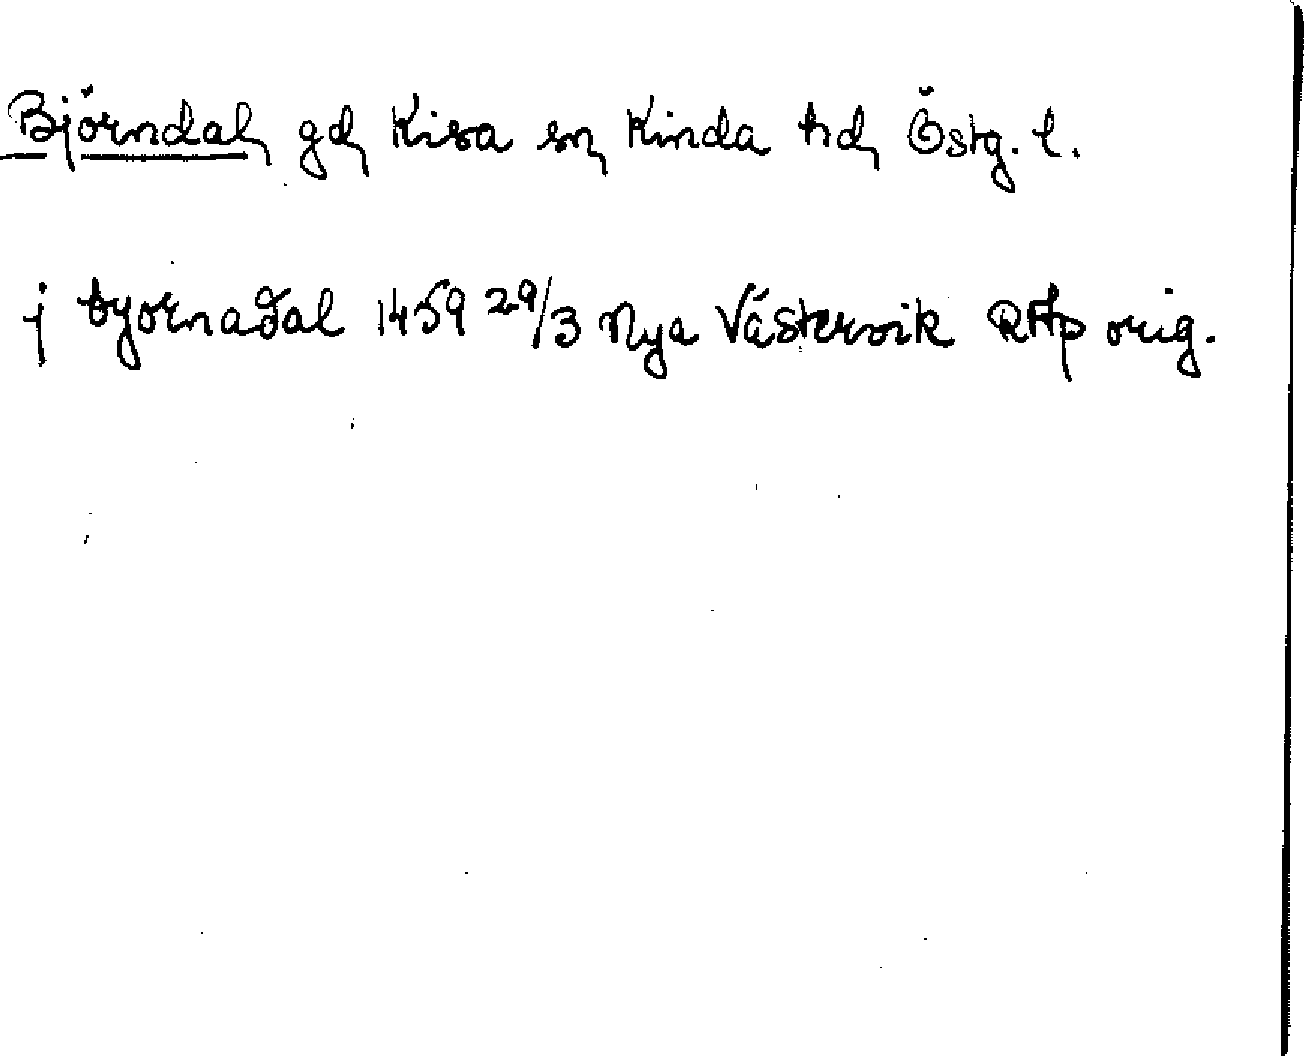 Björndal, gd, Kisa sn, Kinda hd, Östg. l.
j byornadal 1459 29/3 Nya Västervik RAp orig.